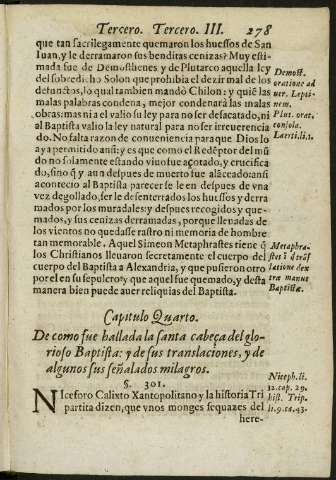 Tercero. Tercero. III. 278
que tan sacrilegamente quemaron los huessos de San
Iuan, y le derramaron sus benditas cenizas? Muy esti-
mada fue de Demosthenes y de Plutarco aquella ley
del sobredicho Solon que prohibia el dezir mal de los
defunctos, lo qual tambien mandò Chilon: y quiẽ las
malas palabras condena, mejor condenarà las malas
obras: mas ni al valio su ley para no ser desacatado, ni
al Baptista valio la ley natural para no ser irreuerencia
do. No falta razon de conueniencia para que Dios lo
aya permitido ansi; y es que como el Redẽptor del mũ
do no solamente estando viuo fue açotado, y crucifica
do, sino q̃ y aun despues de muerto fue alãceado: ansi
acontecio al Baptista parecerse le en despues de vna
vez degollado, ser le desenterrados los huessos y derra
mados por los muradales: y despues recogidos y que-
mados, y sus cenizas derramadas, porque lleuadas de
los vientos no quedasse rastro ni memoria de hombre
tan memorable. Aquel Simeon Metaphrastes tiene q̃
los Christianos lleuaron secretamente el cuerpo del
cuerpo del Baptista a Alexandria, y que pusieron otro
por el en su sepulcro: y que aquel fue quemado, y desta
manera bien puede auer reliquias del Baptista.
Demost.
oratione ad
uer. Lepti-
nem.
Plut. orat.
consola.
Laerti. li. 1.
Metaphra-
Baptistæ.
Capitulo Quarto.
De como fue hallada la santa cabeça del glo-
rioso Baptista: y de sus translaciones, y de
algunos sus señalados milagros.
§. 301.
NIceforo Calixto Xantopolitano y la historia Tri
partita dizen, que vnos monges sequazes del
here-
Niceph. li.
12. cap. 29.
hist. Trip.
li. 9. ca. 43.